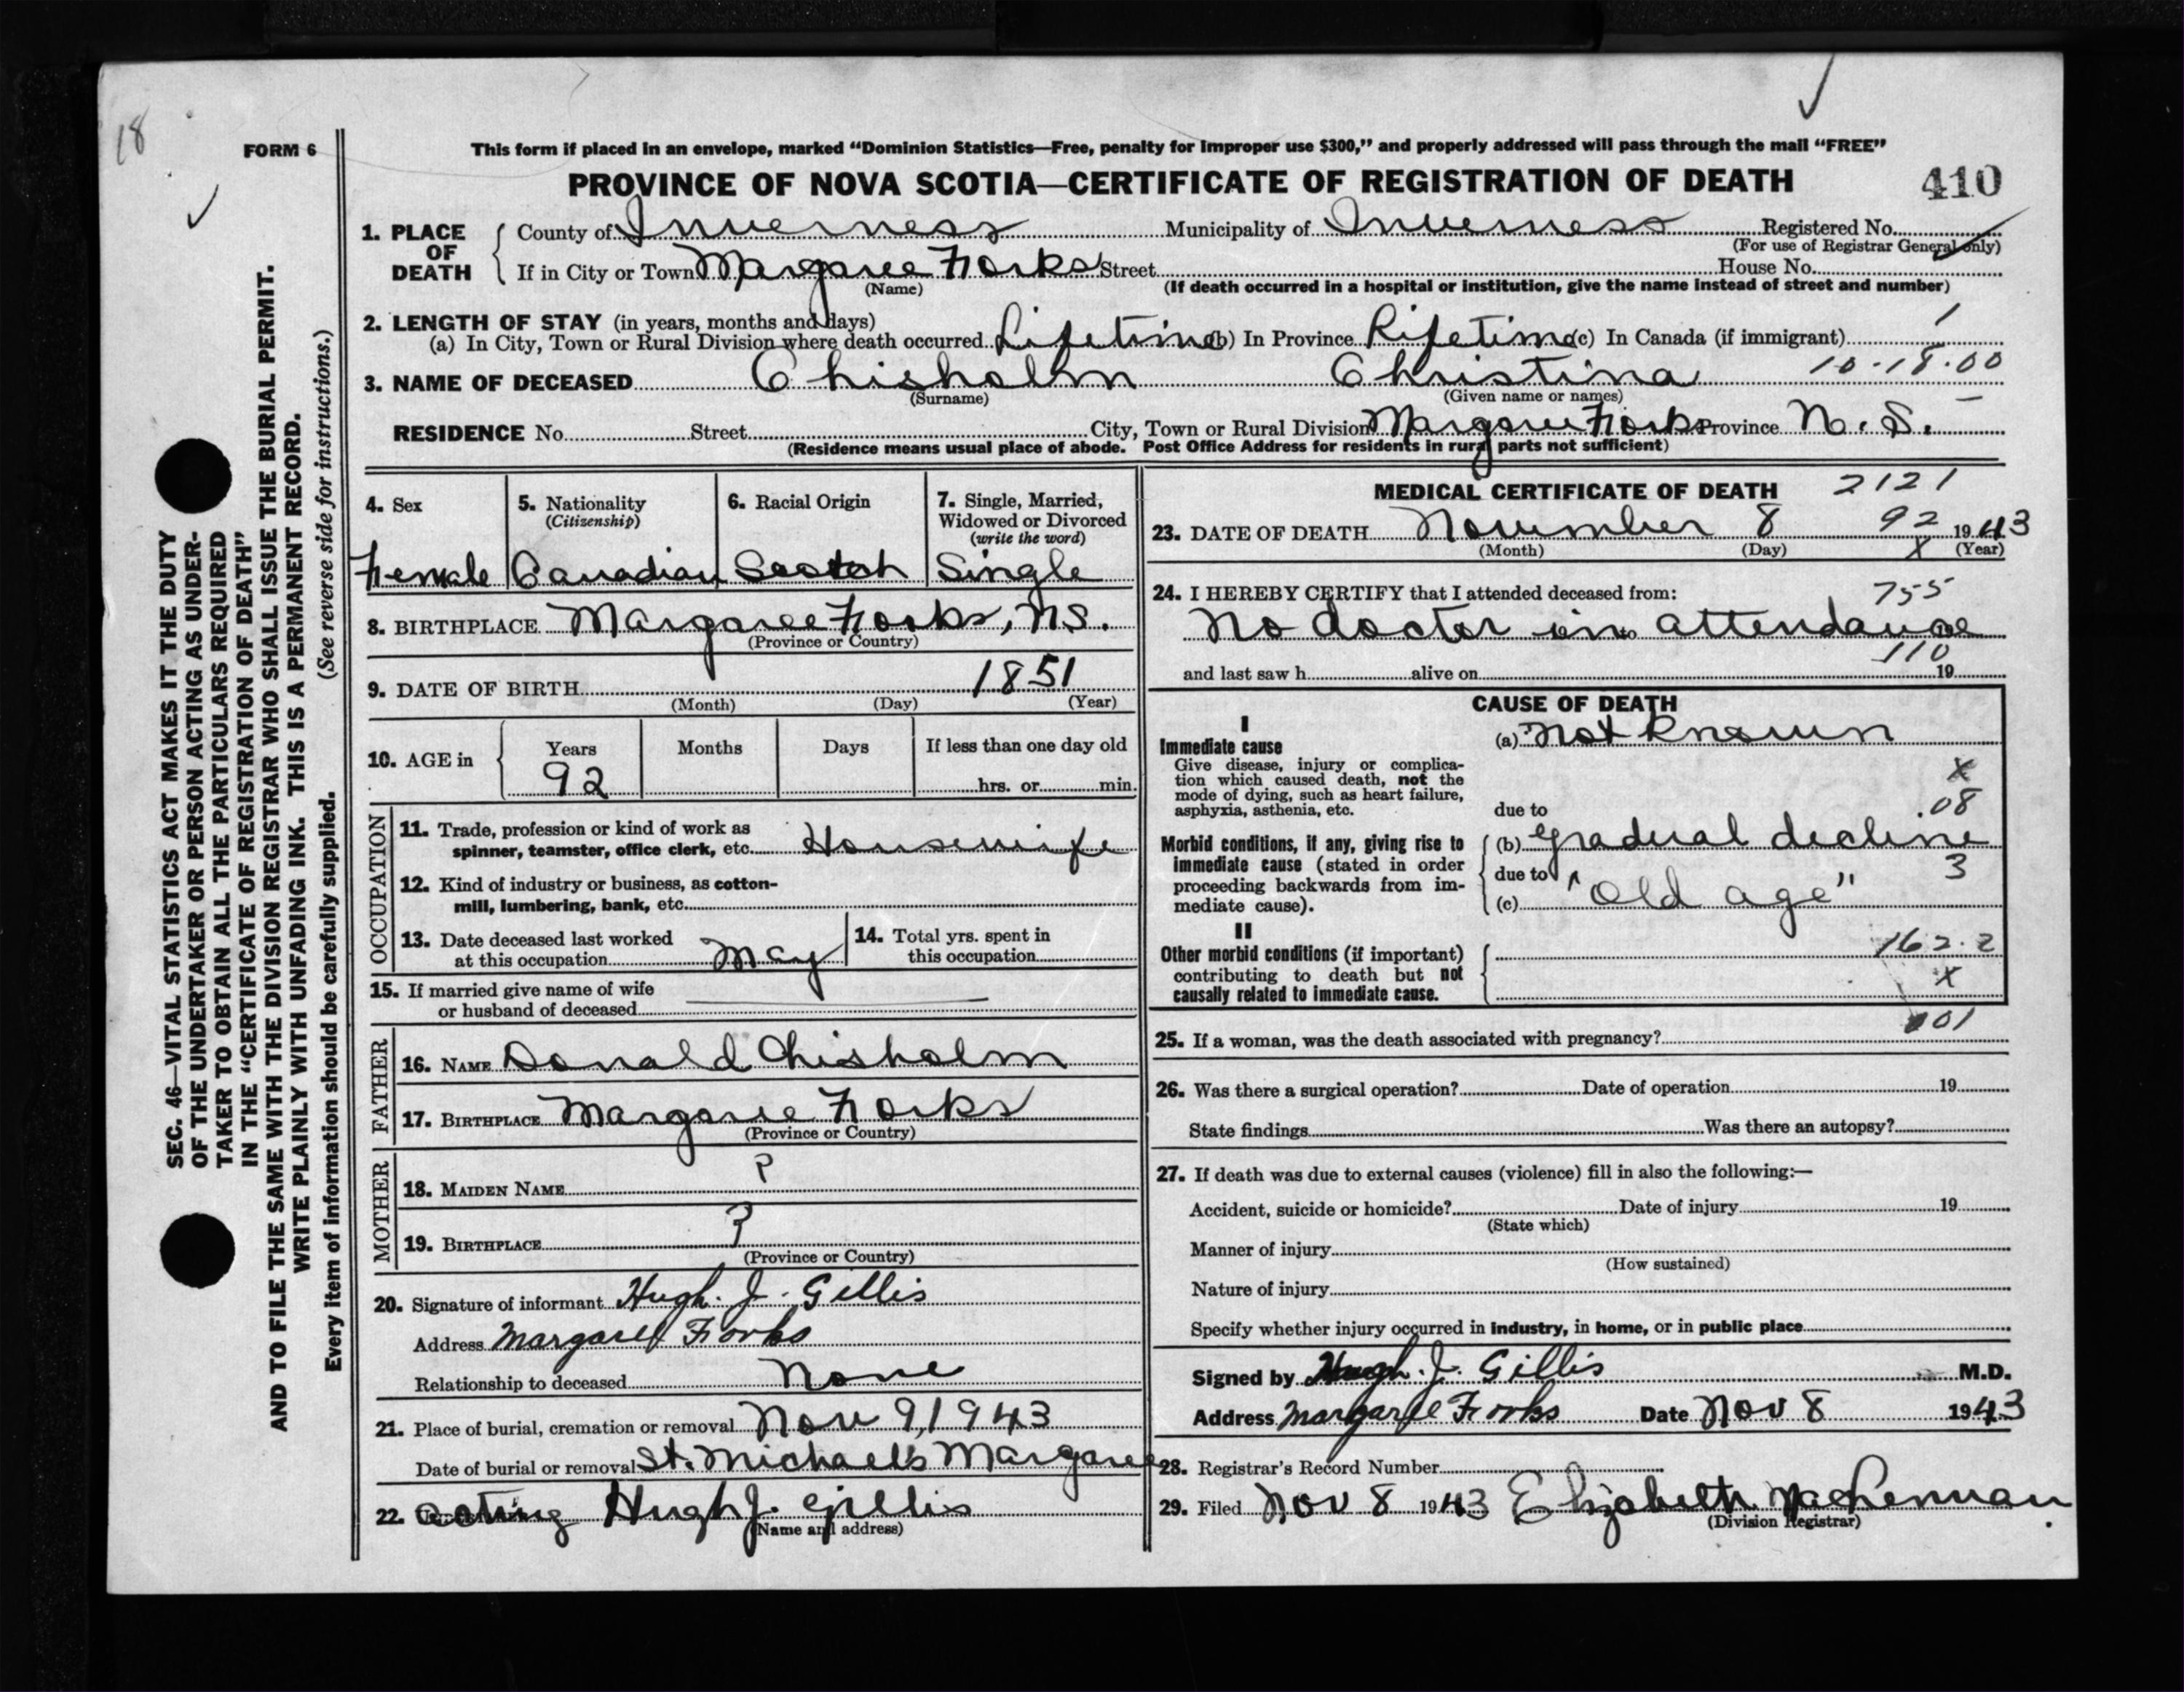 18
FORM 6
This form if placed in an envelope, marked “Dominion Statistics—Free, penalty for improper use $300,” and properly addressed will pass through the mail “FREE”
PROVINCE OF NOVA SCOTIA—CERTIFICATE OF REGISTRATION OF DEATH 410
1. PLACE OF DEATH County of Inverness Municipality of Inverness Registered No.
(For use of Registrar General only)
If in City or Town Margaree Forks Street House No.
(Name) (If death occurred in a hospital or institution, give the name instead of street and number)
2. LENGTH OF STAY (in years, months and days)
(a) In City, Town or Rural Division where death occurred Lifetime (b) In Province Lifetime (c) In Canada (if immigrant)
3. NAME OF DECEASED Chisholm Christina 10-18.00
(Surname) (Given name or names)
RESIDENCE No. Street City, Town or Rural Division Margaree Forks Province N. S.
(Residence means usual place of abode. Post Office Address for residents in rural parts not sufficient)
4. Sex 5. Nationality (Citizenship) 6. Racial Origin 7. Single, Married, Widowed or Divorced (write the word)
Female Canadian Scotch Single
8. BIRTHPLACE Margaree Forks, N.S.
(Province or Country)
9. DATE OF BIRTH 1851
(Month) (Day) (Year)
10. AGE in Years Months Days If less than one day old
92 hrs. or min.
OCCUPATION
11. Trade, profession or kind of work as
spinner, teamster, office clerk, etc. Housewife
12. Kind of industry or business, as cotton-
mill, lumbering, bank, etc.
13. Date deceased last worked
at this occupation May
14. Total yrs. spent in
this occupation
15. If married give name of wife
or husband of deceased
FATHER
16. NAME Donald Chisholm
17. BIRTHPLACE Margaree Forks
(Province or Country)
MOTHER
18. MAIDEN NAME ?
19. BIRTHPLACE ?
(Province or Country)
20. Signature of informant Hugh. J. Gillis
Address Margaree Forks
Relationship to deceased None
21. Place of burial, cremation or removal Nov 9, 1943
Date of burial or removal St. Michael's Margaree
22. acting Hugh J. Gillis
(Name and address)
MEDICAL CERTIFICATE OF DEATH 2121
23. DATE OF DEATH November 8 92 1943
(Month) (Day) X (Year)
24. I HEREBY CERTIFY that I attended deceased from: 755
No doctor in attendance
110
and last saw h alive on 19
CAUSE OF DEATH
I
Immediate cause (a) Not Known
Give disease, injury or complica-
tion which caused death, not the
mode of dying, such as heart failure,
asphyxia, asthenia, etc. due to
X
.08
Morbid conditions, if any, giving rise to
immediate cause (stated in order
proceeding backwards from im-
mediate cause).
(b) gradual decline
due to 3
(c) "Old age"
II
Other morbid conditions (if important)
contributing to death but not
causally related to immediate cause.
162.2
X
25. If a woman, was the death associated with pregnancy?
26. Was there a surgical operation? Date of operation 19
State findings Was there an autopsy?
27. If death was due to external causes (violence) fill in also the following:—
Accident, suicide or homicide? Date of injury 19
(State which)
Manner of injury
(How sustained)
Nature of injury
Specify whether injury occurred in industry, in home, or in public place
Signed by Hugh. J. Gillis M.D.
Address Margaree Forks Date Nov 8 1943
28. Registrar's Record Number
29. Filed Nov 8 1943 Elizabeth MacLennan
(Division Registrar)
SEC. 46—VITAL STATISTICS ACT MAKES IT THE DUTY
OF THE UNDERTAKER OR PERSON ACTING AS UNDER-
TAKER TO OBTAIN ALL THE PARTICULARS REQUIRED
IN THE “CERTIFICATE OF REGISTRATION OF DEATH”
AND TO FILE THE SAME WITH THE DIVISION REGISTRAR WHO SHALL ISSUE THE BURIAL PERMIT.
WRITE PLAINLY WITH UNFADING INK. THIS IS A PERMANENT RECORD.
Every item of information should be carefully supplied. (See reverse side for instructions.)